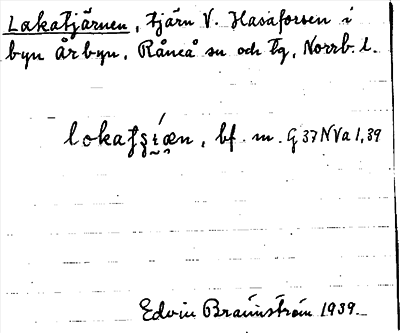 Lakatjärnen, tjärn V. Hasaforsen i
byn Årbyn, Råneå sn och tg, Norrb. l.
bf. m. G 37 NVa 1,39
Edvin Brännström 1939.